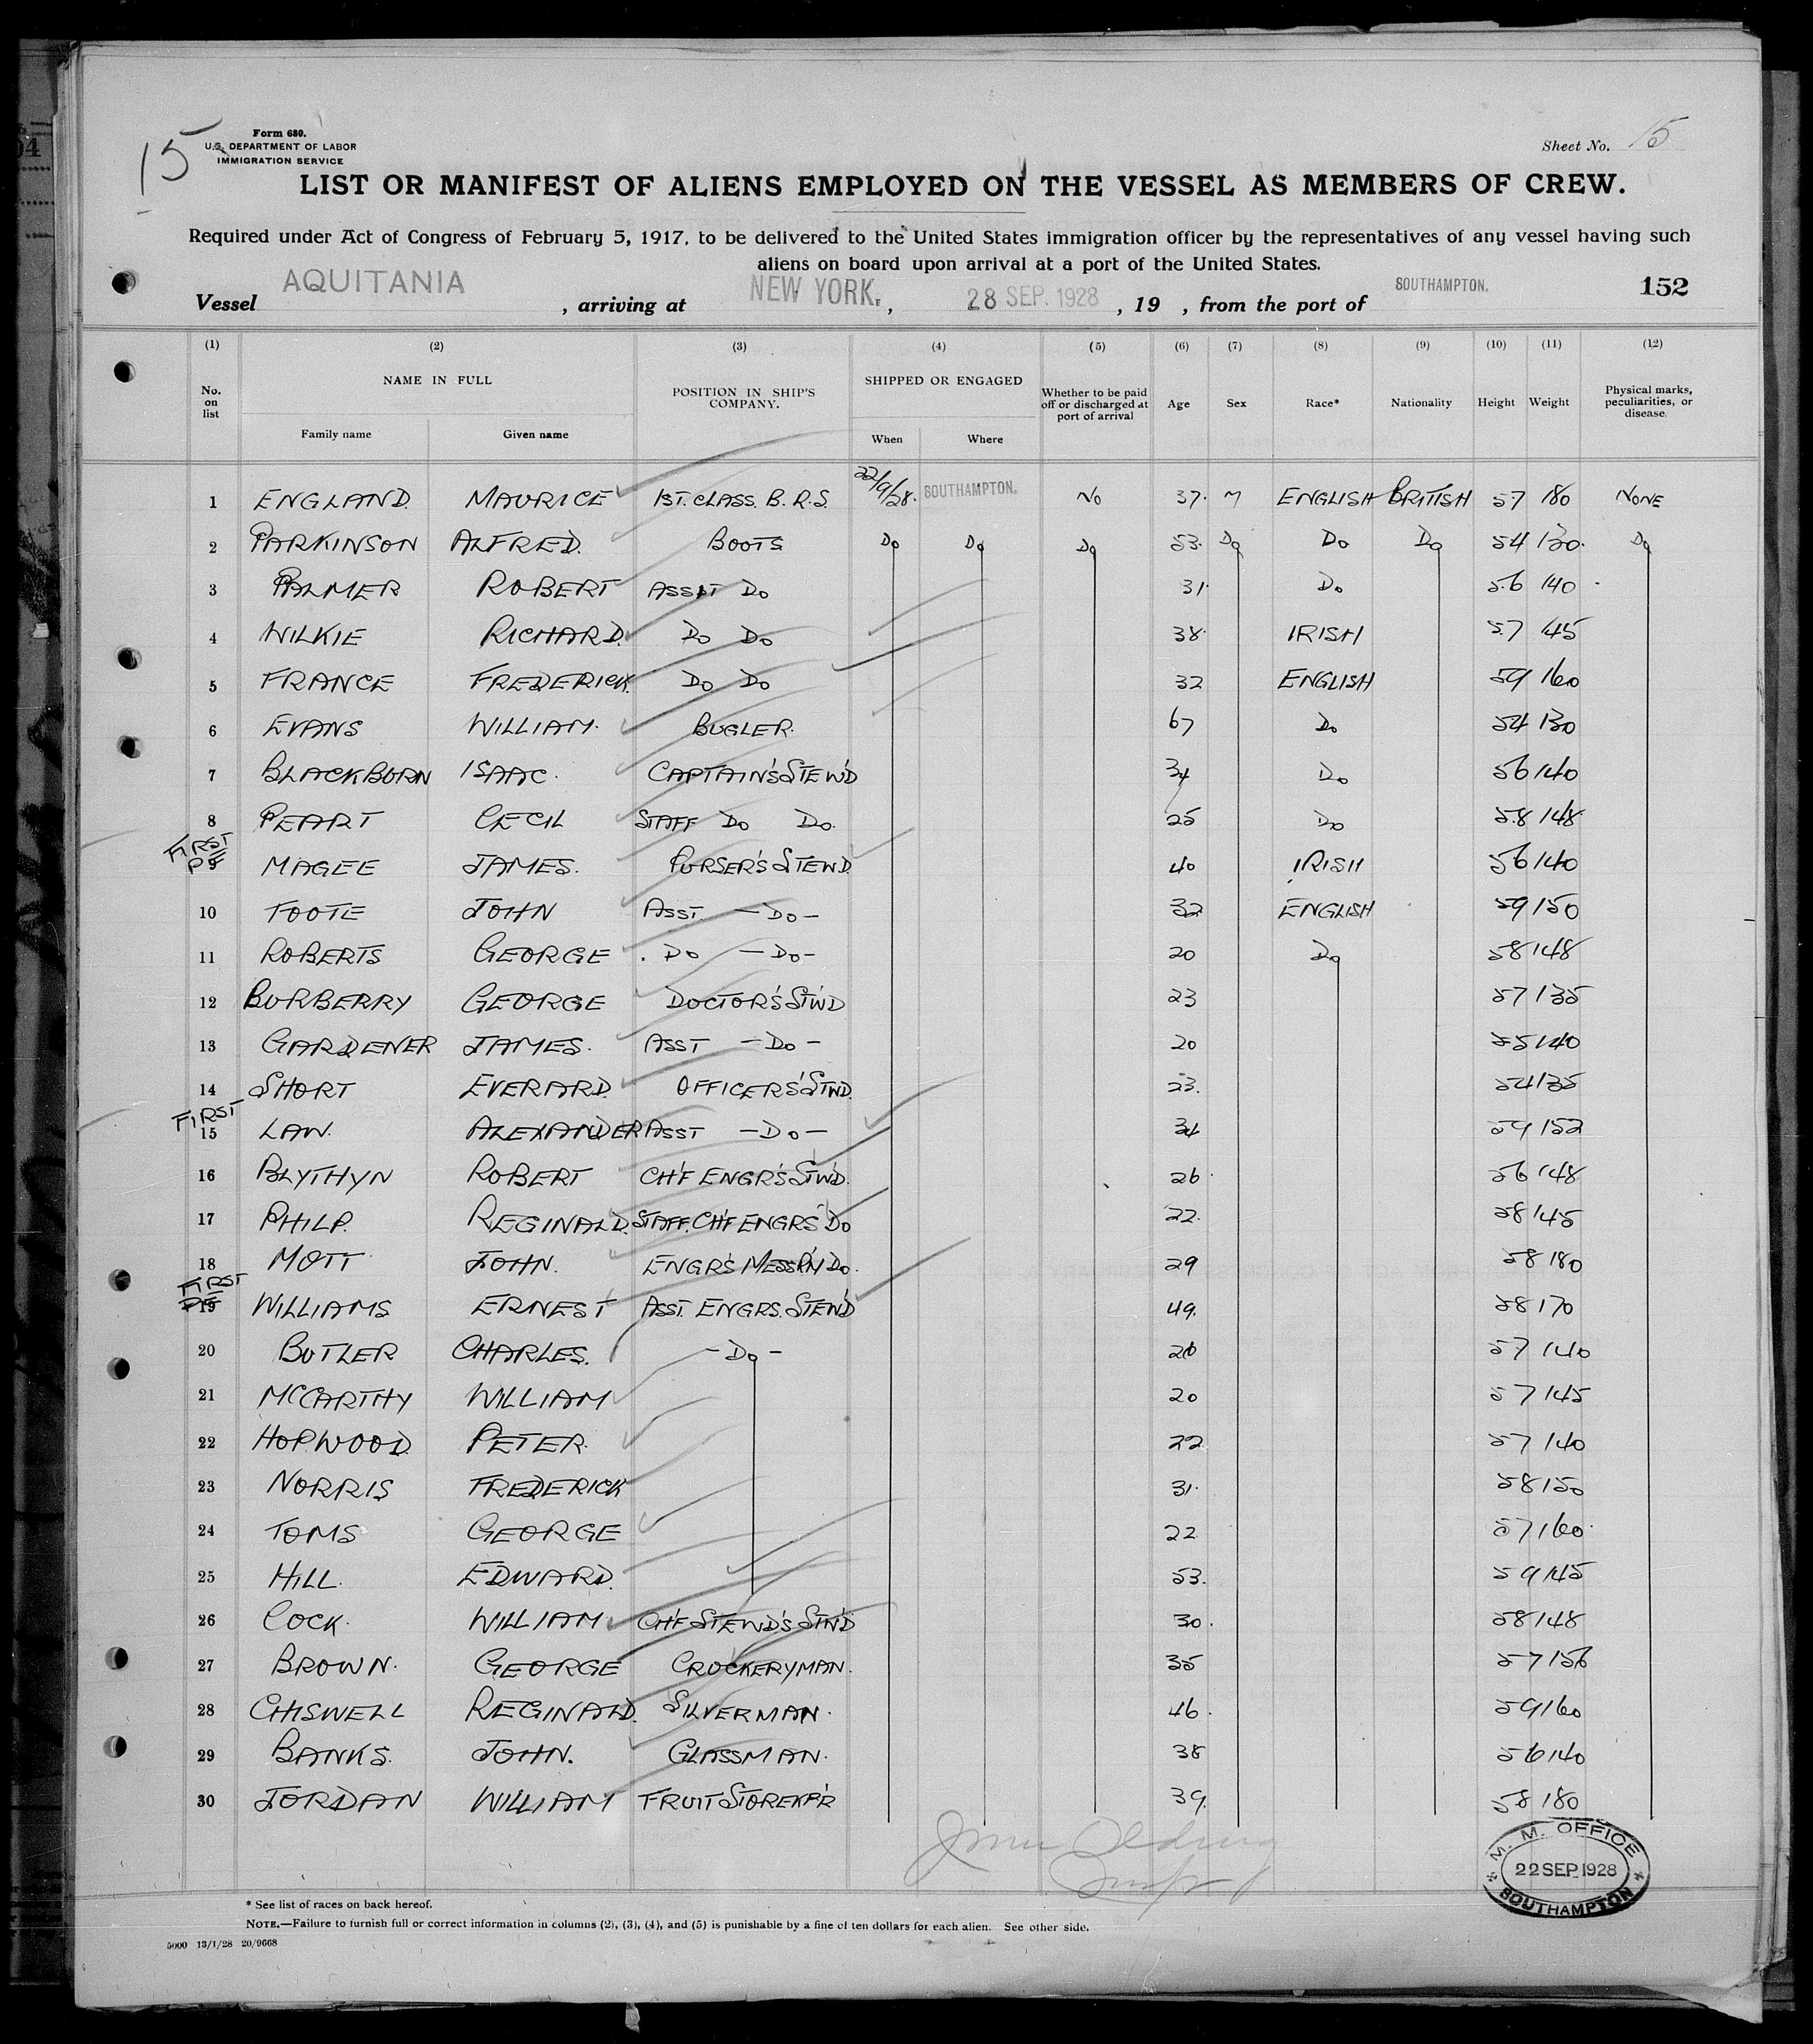 15
Form 680.
U.S. DEPARTMENT OF LABOR
IMMIGRATION SERVICE
Sheet No. 15
LIST OR MANIFEST OF ALIENS EMPLOYED ON THE VESSEL AS MEMBERS OF CREW.
Required under Act of Congress of February 5, 1917, to be delivered to the United States immigration officer by the representatives of any vessel having such
aliens on board upon arrival at a port of the United States.
Vessel AQUITANIA, arriving at NEW YORK., 28 SEP. 1928, 19 , from the port of SOUTHAMPTON. 152
(1) (2) (3) (4) (5) (6) (7) (8) (9) (10) (11) (12)
No. on list NAME IN FULL POSITION IN SHIP'S COMPANY. SHIPPED OR ENGAGED Whether to be paid off or discharged at port of arrival Age Sex Race* Nationality Height Weight Physical marks, peculiarities, or disease.
Family name Given name When Where
1 ENGLAND. MAURICE 1ST. CLASS. B.R.S. 22/9/28. SOUTHAMPTON. NO 37. M ENGLISH BRITISH 5.7 180 NONE
2 PARKINSON ALFRED. BOOTS DO DO DO 53. DO DO DO 54 130. DO
3 PALMER ROBERT ASS'T DO 31. DO 5.6 140
4 WILKIE RICHARD. DO DO 38. IRISH 5.7 145
5 FRANCE FREDERICK. DO DO 32 ENGLISH 59 160
6 EVANS WILLIAM. BUGLER. 67 DO 54 130
7 BLACKBURN ISAAC. CAPTAIN'S STEW'D 34 DO 56 140
8 PEART CECIL STAFF DO DO. 25 DO 5.8 148
FIRST
9 MAGEE JAMES. PURSER'S STEW'D. 40 IRISH 56 140
10 FOOTE JOHN ASST. -DO- 32 ENGLISH 59 150
11 ROBERTS GEORGE . DO -DO- 20 DO 58 148
12 BURBERRY GEORGE DOCTOR'S ST'W'D 23 57 135
13 GARDENER JAMES. ASST -DO- 20 55 140
14 SHORT EVERARD. OFFICER'S STWD. 23. 54 135
FIRST
15 LAW. ALEXANDER ASST -DO- 34 59 152
16 BLYTHYN ROBERT CH'F ENGR'S STW'D. 26 56 148
17 PHILP. REGINALD. STAFF. CH'F ENGRS' DO 22. 58 145
18 MOTT JOHN. ENGR'S MESSR'M DO. 29 58 180
FIRST
19 WILLIAMS ERNEST ASST. ENGRS. STEW'D 49. 58 170
20 BUTLER CHARLES. -DO- 20 57 140
21 MCCARTHY WILLIAM 20 57 145
22 HOPWOOD. PETER. 22 57 140
23 NORRIS FREDERICK 31. 58 150
24 TOMS GEORGE 22 57 160.
25 HILL. EDWARD. 53. 59 145
26 COCK. WILLIAM CH'F STEWD'S STW'D 30. 58 148
27 BROWN. GEORGE CROCKERYMAN. 35 57 156
28 CHISWELL REGINALD. SILVERMAN. 46. 59 160
29 BANKS. JOHN. GLASSMAN. 38 56 140
30 JORDAN WILLIAM FRUIT STOREKP'R 39. 58 180
M. M. OFFICE
22 SEP. 1928
SOUTHAMPTON
* See list of races on back hereof.
NOTE.—Failure to furnish full or correct information in columns (2), (3), (4), and (5) is punishable by a fine of ten dollars for each alien. See other side.
5000 13/1/28 20/9668